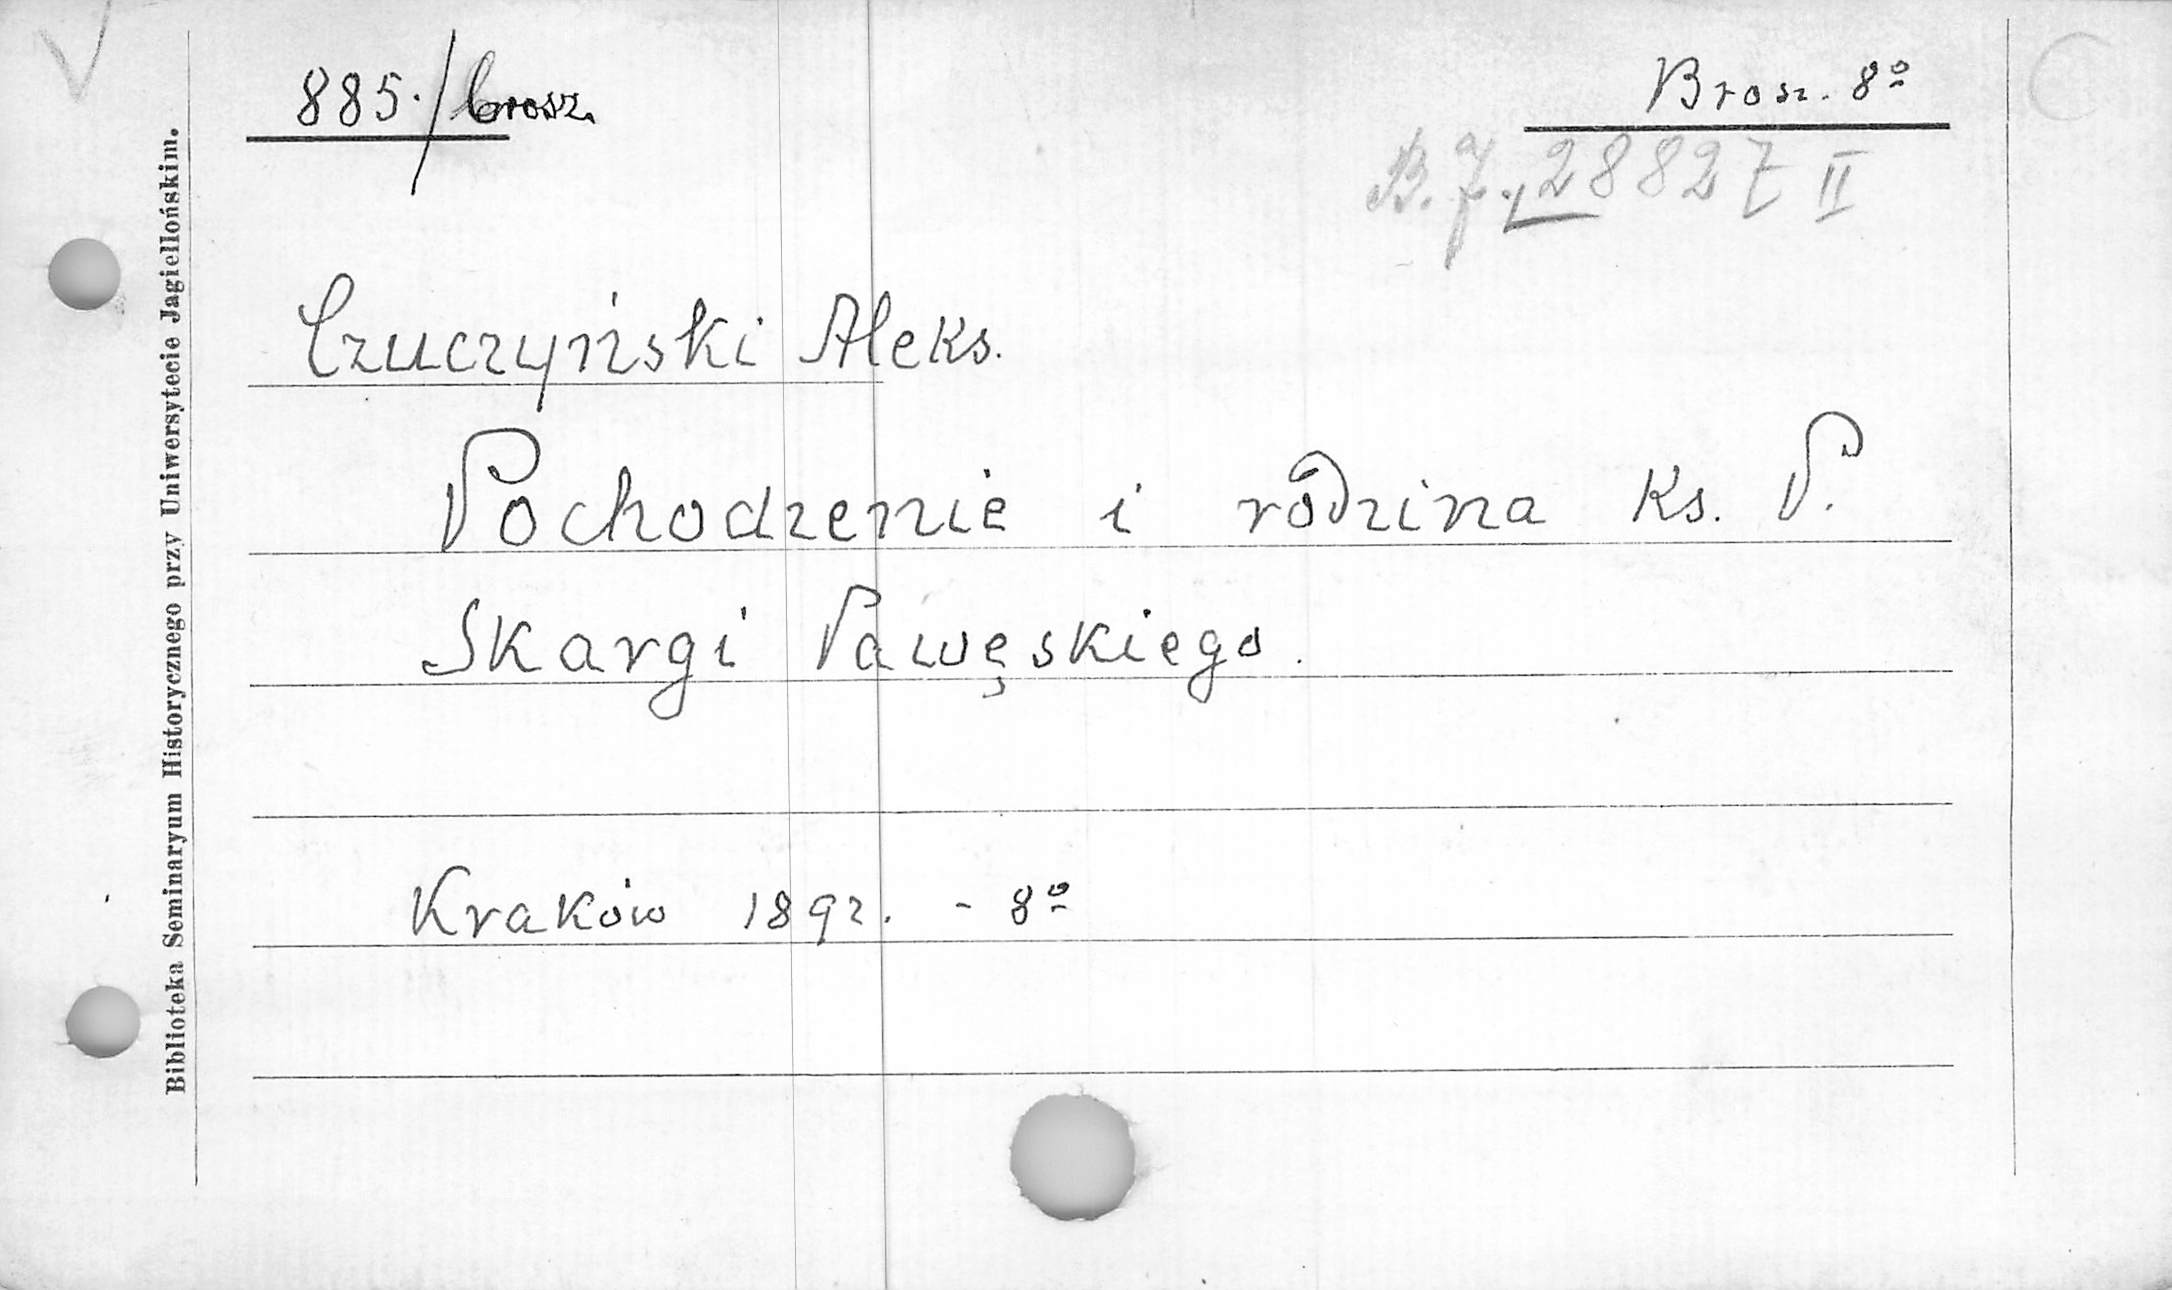 885./brosz.
Brosz. 8º
B.J. 28827 II
Czuczyński Aleks.
Pochodzenie i rodzina Ks. P.
Skargi Pawęskiego.
Kraków 1892. - 8º
Biblioteka Seminaryum Historycznego przy Uniwersytecie Jagiellońskim.